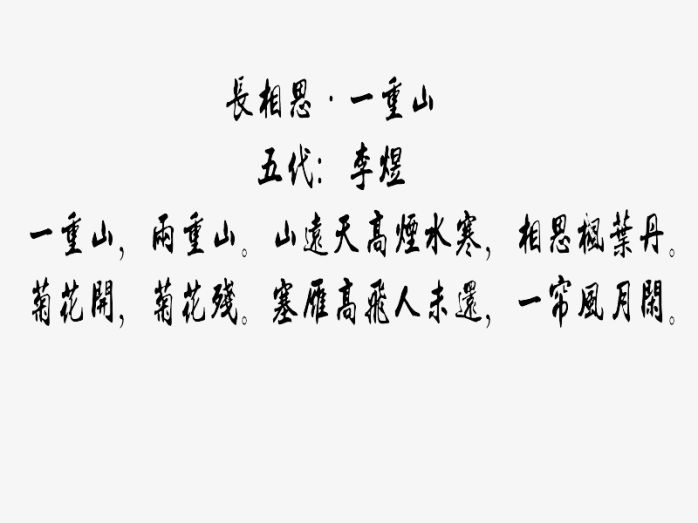 長相思·一重山
五代：李煜
一重山，兩重山。山遠天高煙水寒，相思楓葉丹。
菊花開，菊花殘。塞雁高飛人未還，一帘風月閑。